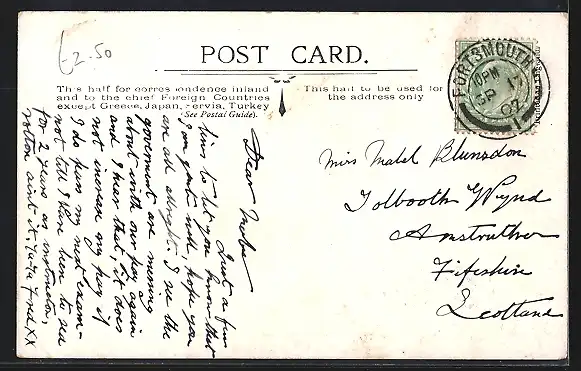 £2-50
POST CARD.
This half for corres ondence inland
and to the chief Foreign Countries
except Greece, Japan, ervia, Turkey
(See Postal Guide).
This half to be used for
the address only
PORTSMOUTH
SP 17
07
Dear Mabe
Just a few
lines to let you know that
I am quite well, hope you
are all alright. I see the
government are messing
about with our pay again
and I hear that, it does
not increase my pay if
I do pass my next exam-
not till I have been to sea
for 2 years as instructor,
rotten aint it, ta-ta Fred XX
Miss Mabel Blunsdon
Tolbooth Wynd
Anstruther
Fifeshire
Scotland